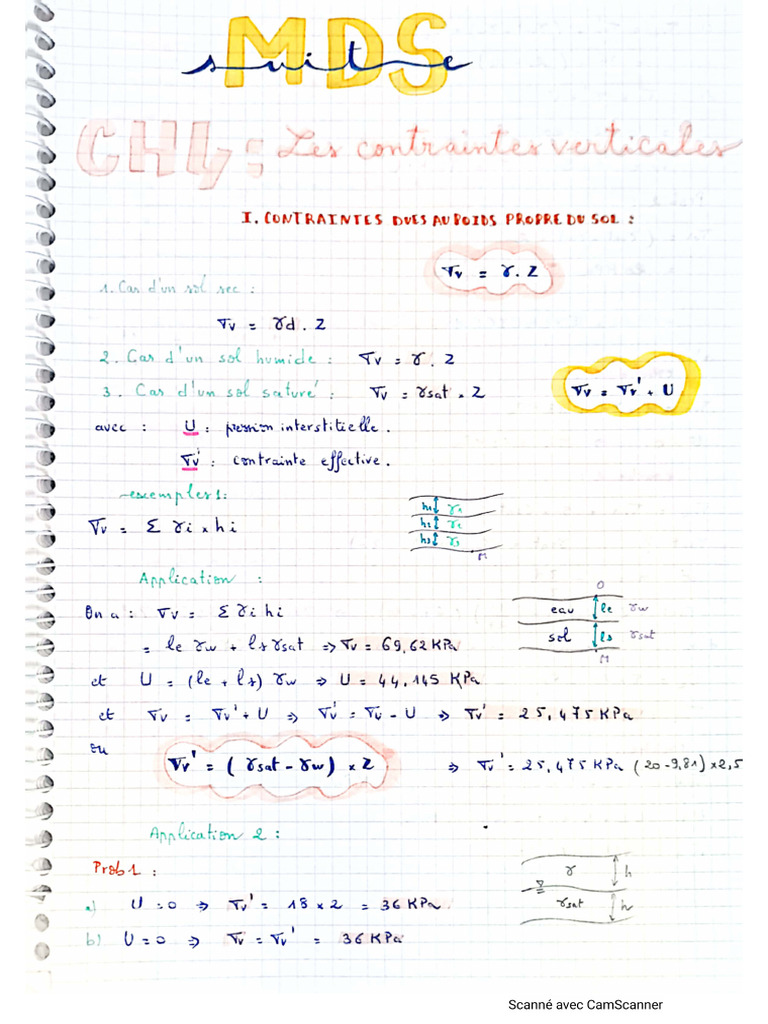 MDS
suite
CH4 : Les contraintes verticales
I. CONTRAINTES DUES AU POIDS PROPRE DU SOL :
σv = γ . Z
1. Cas d'un sol sec :
σv = γd . Z
2. Cas d'un sol humide : σv = γ . Z
3. Cas d'un sol saturé : σv = γsat × Z
σv = σv' + U
avec : U : pression interstitielle.
σv' : contrainte effective.
exemples 1:
σv = Σ γi × hi
h1 γ1
h2 γ2
h3 γ3
M
Application :
O
On a : σv = Σ γi hi
eau le γw
= le γw + ls γsat ⇒ σv = 69,62 KPa
sol ls γsat
M
et U = (le + ls) γw ⇒ U = 44,145 KPa
et σv = σv' + U ⇒ σv' = σv - U ⇒ σv' = 25,475 KPa
ou
σv' = ( γsat - γw ) × Z ⇒ σv' = 25,475 KPa (20 - 9,81) × 2,5
Application 2 :
Prob 1 :
γ h
a) U = 0 ⇒ σv' = 18 × 2 = 36 KPa
γsat h
b) U = 0 ⇒ σv = σv' = 36 KPa
Scanné avec CamScanner